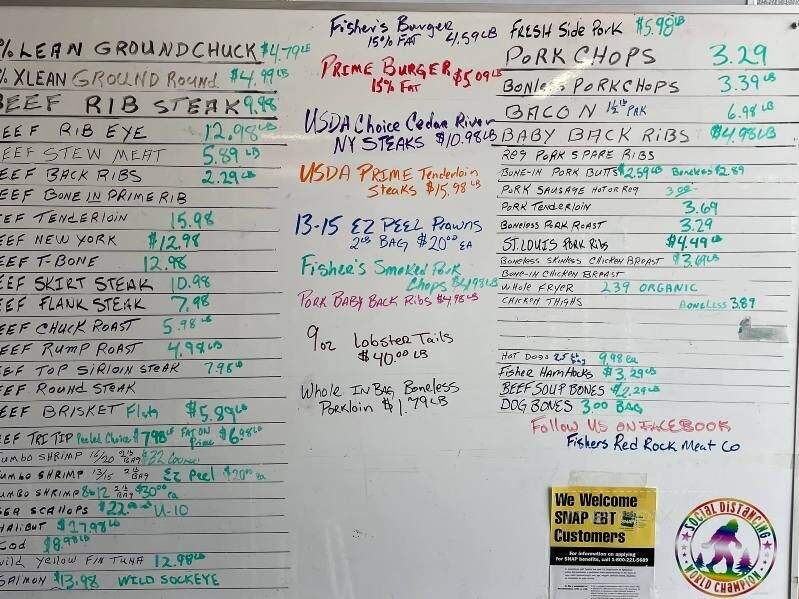 % LEAN GROUNDCHUCK $4.79LB
% XLEAN GROUND ROUND $4.99LB
BEEF RIB STEAK 9.98
EEF RIB EYE 12.98LB
EEF STEW MEAT 5.89 LB
EEF BACK RIBS 2.29LB
EEF BONE IN PRIME RIB
EEF TENDERLOIN 15.98
EEF NEW YORK $12.98
EEF T-BONE 12.98
EEF SKIRT STEAK 10.98
EEF FLANK STEAK 7.98
EEF CHUCK ROAST 5.98LB
EEF RUMP ROAST 4.98LB
EEF TOP SIRLOIN STEAK 7.98LB
EEF ROUND STEAK
EEF BRISKET Flats $5.89LB
EEF TRI TIP Peeled Choice $7.98LB FAT ON Prime $6.98LB
UMBO SHRIMP 16/20 2LB BAG $32
UMBO SHRIMP 13/15 2LB BAG EZ Peel $20.00 ea
UMBO SHRIMP 8&12 2LB BAG $30.00 ea
SEA SCALLOPS $22.00LB U-10
HALIBUT $27.98LB
COD $8.98LB
WILD YELLOW FIN TUNA 12.98LB
SALMON $13.98 WILD SOCKEYE
Fisher's Burger
15% FAT 4.59LB
PRIME BURGER $5.09LB
15% FAT
USDA Choice Cedar River
NY STEAKS $10.98LB
USDA PRIME Tenderloin
Steaks $15.98LB
13-15 EZ PEEL Prawns
2LB BAG $20.00 EA
Fisher's Smoked Pork
Chops $4.98LB
PORK BABY BACK RIBS $4.98LB
9oz Lobster Tails
$40.00 LB
Whole IN BAG Boneless
Porkloin $1.79LB
FRESH SIDE PORK $5.98LB
PORK CHOPS 3.29
BONELESS PORKCHOPS 3.39LB
BACON 1½ lb PAK 6.98LB
BABY BACK RIBS $4.98LB
REG PORK SPARE RIBS
BONE-IN PORK BUTTS $2.59LB Boneless $2.89
PORK SAUSAGE HOT OR REG
PORK TENDERLOIN 3.69
BONELESS PORK ROAST 3.29
ST. LOUIS PORK RIBS $4.49LB
BONELESS SKINLESS CHICKEN BREAST $3.69LB
BONE-IN CHICKEN BREAST
WHOLE FRYER 2.39 ORGANIC
CHICKEN THIGHS BONELESS 3.89
HOT DOGS 2.5 lb bag 9.98 ea
FISHER HAM HOCKS $3.29LB
BEEF SOUP BONES $2.29LB
DOG BONES 3.00 BAG
FOLLOW US ON FACEBOOK
FISHERS RED ROCK MEAT CO
We Welcome
SNAP EBT
Customers
For information on applying
for SNAP benefits, call 1-800-221-5689
SOCIAL DISTANCING
WORLD CHAMPION